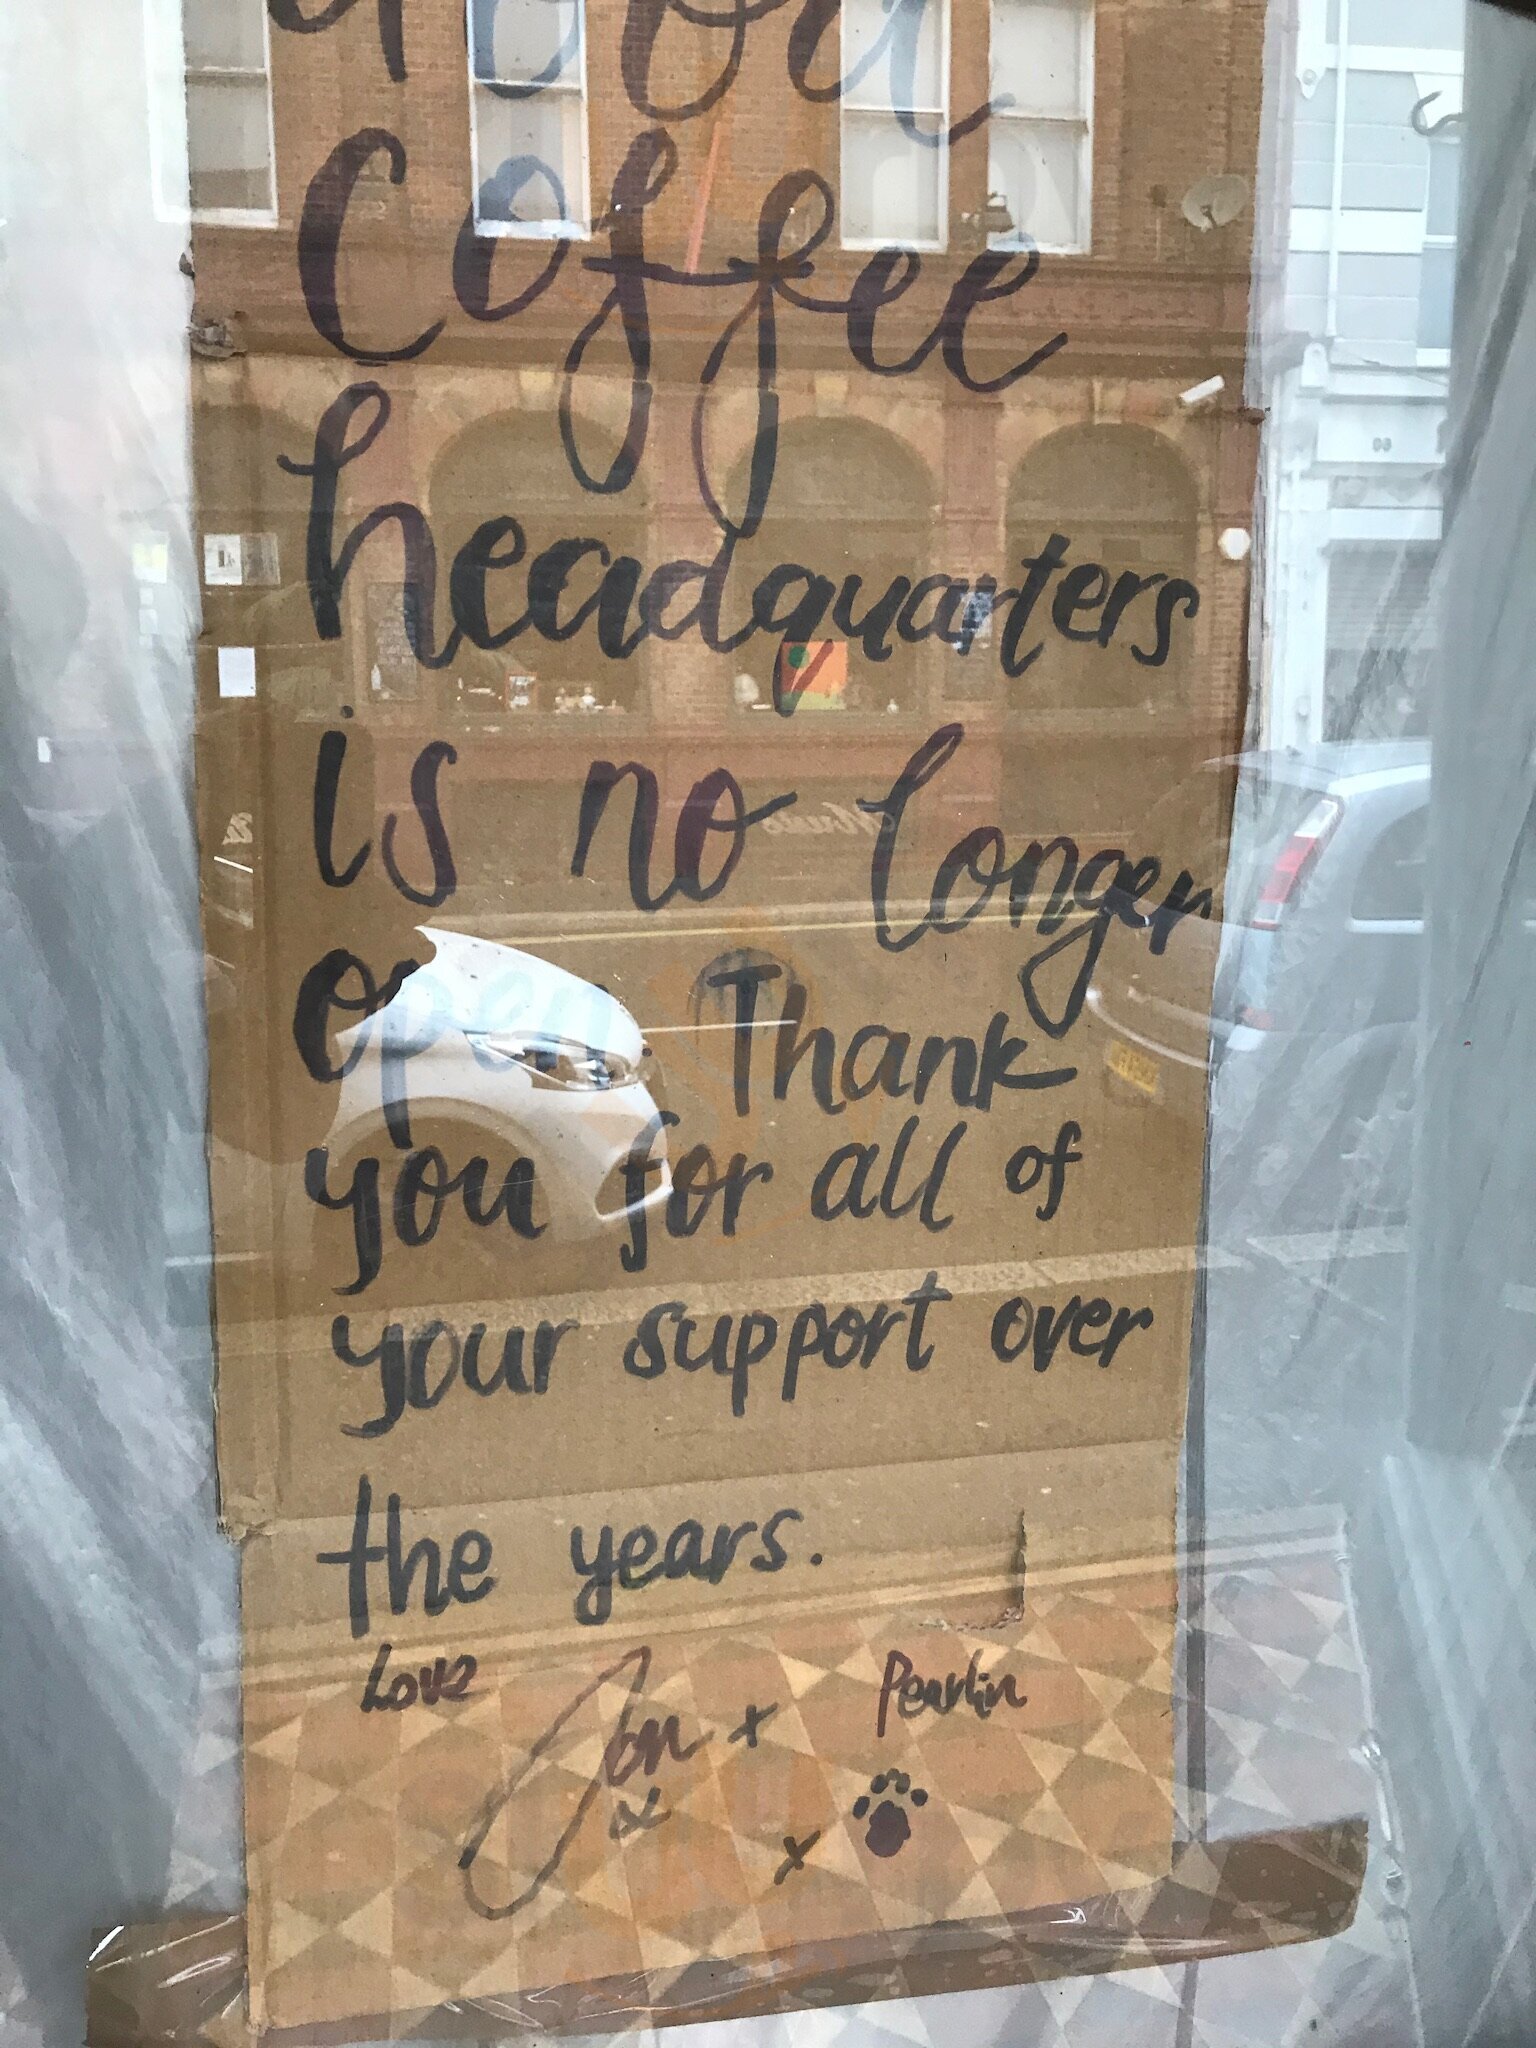 Good
Coffee
headquarters
is no longer
open. Thank
you for all of
your support over
the years.
Love Jon + Pearlin
x